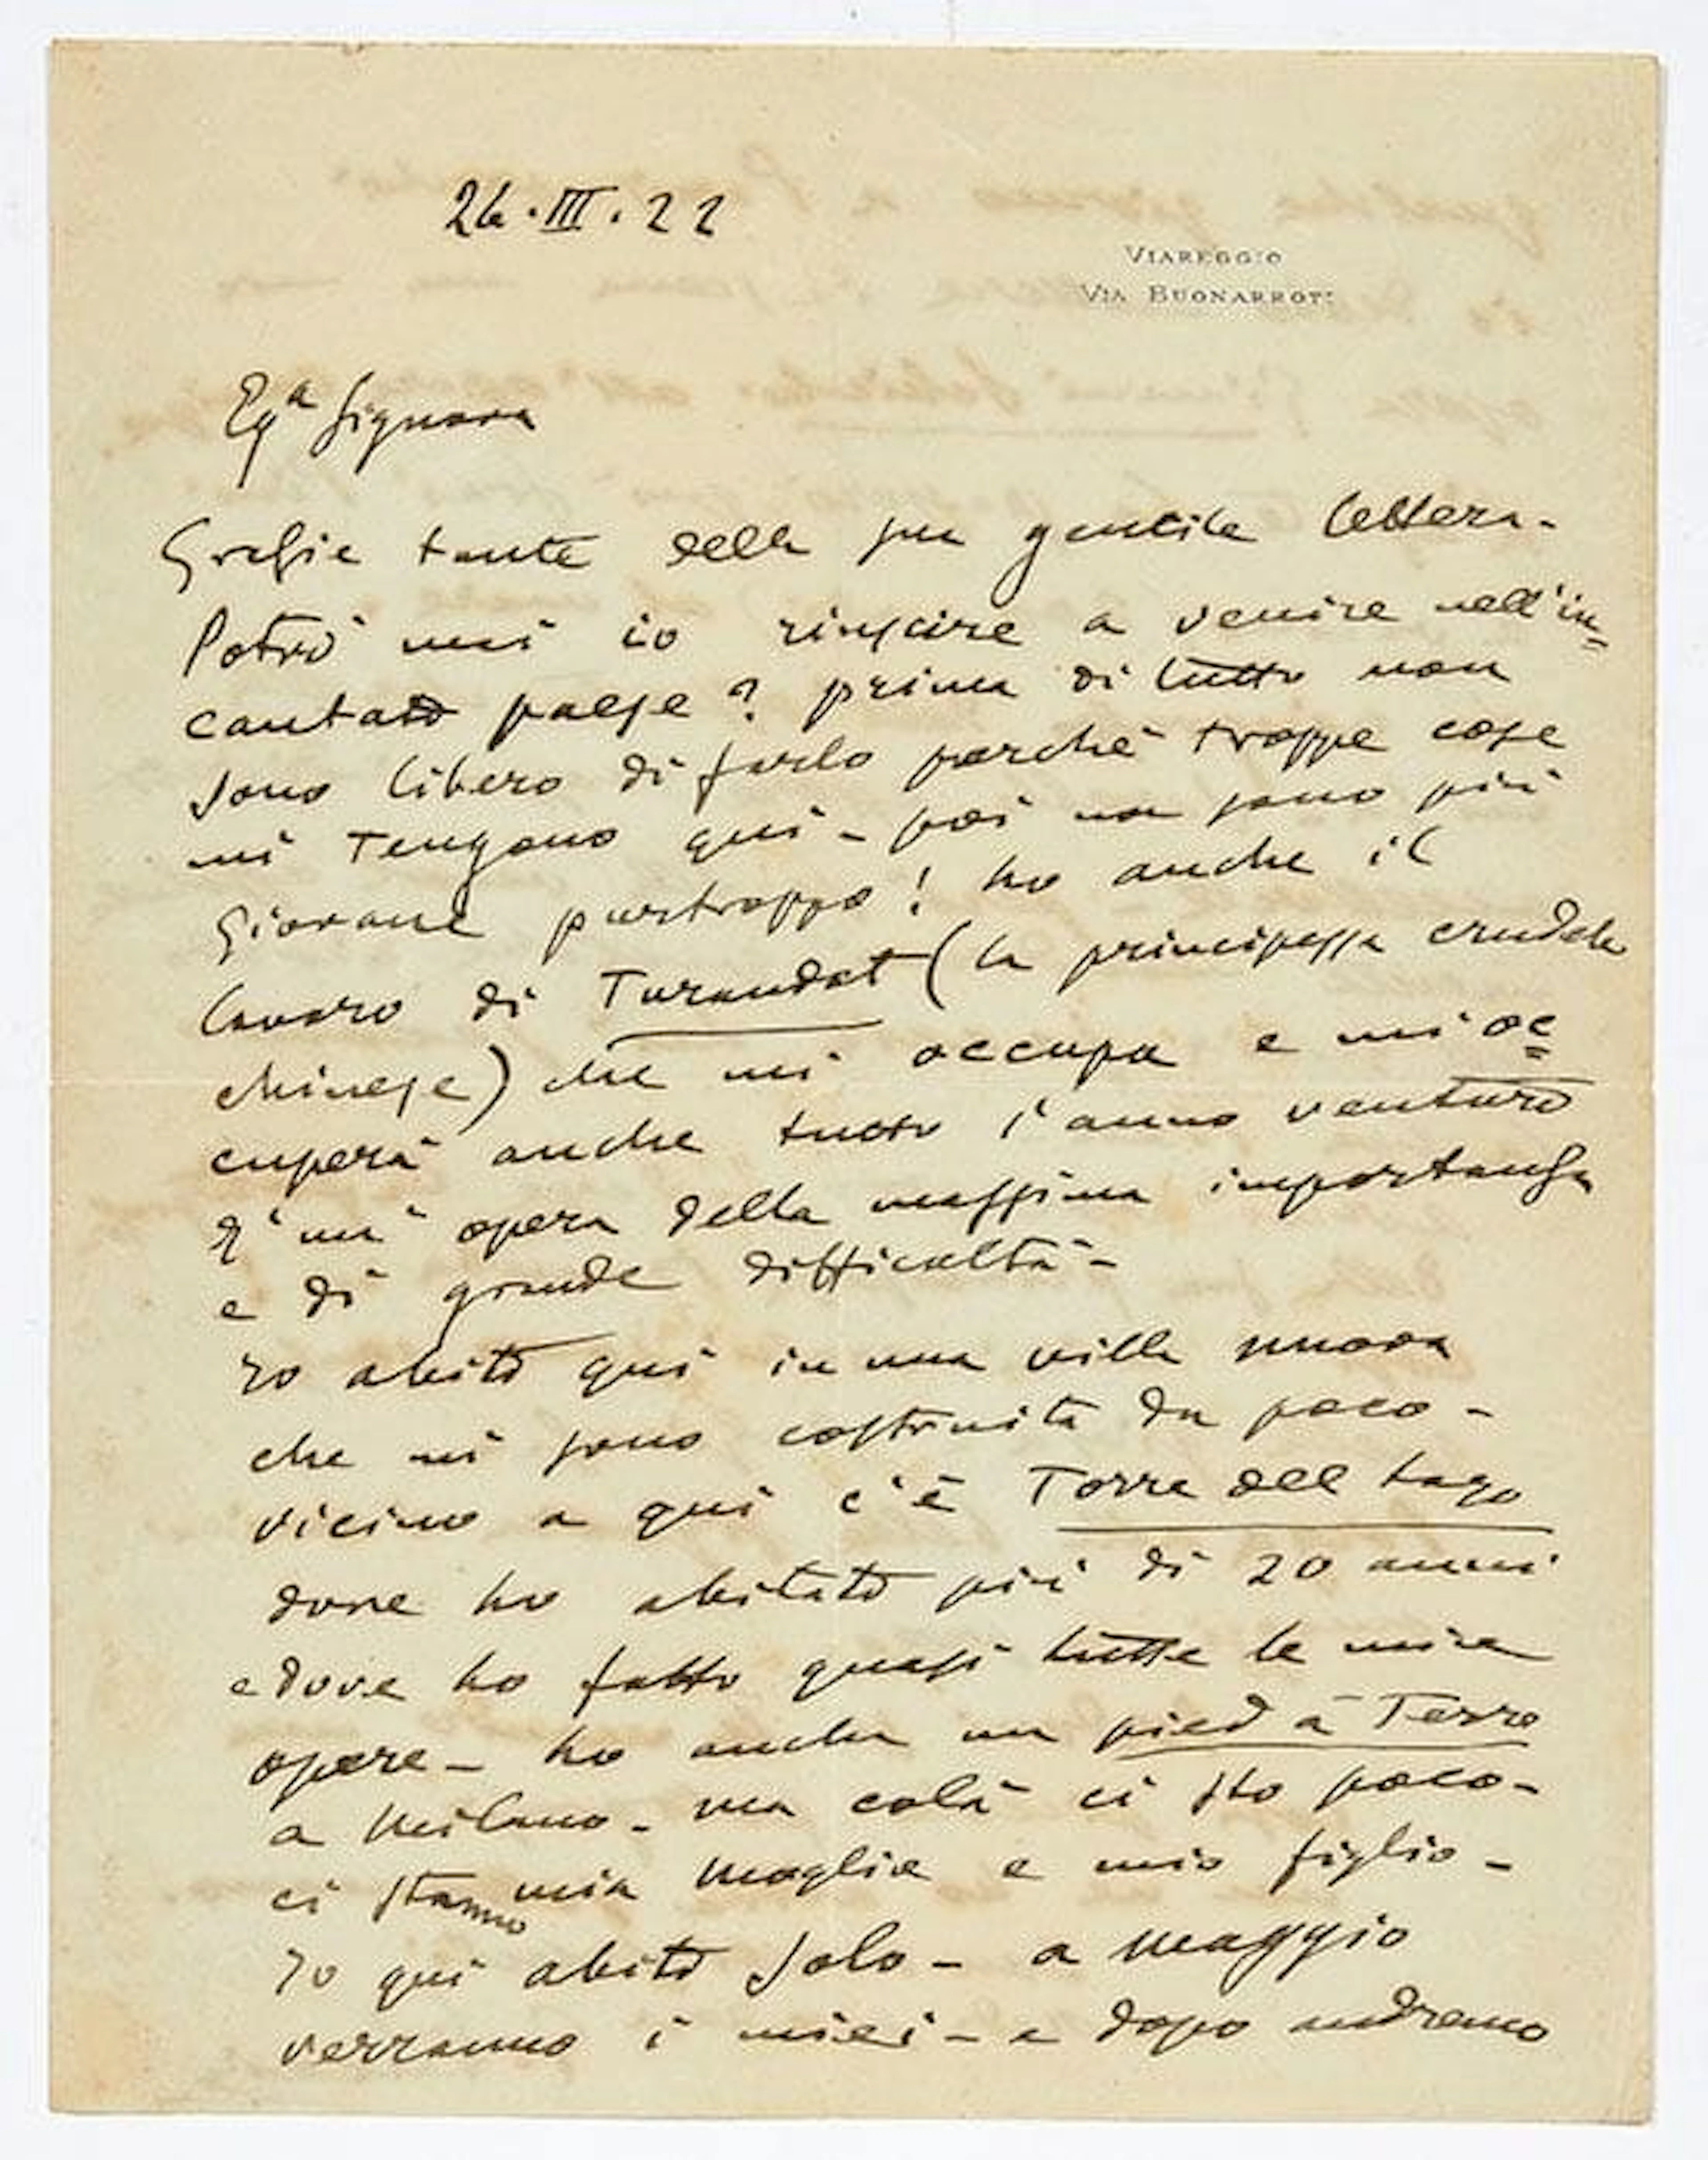 26.III.22
VIAREGGIO
VIA BUONARROTI
Egª Signora
Grazie tante della sua gentile lettera-
Potrò mai io riuscire a venire nell'in=
cantato paese? prima di tutto non
sono libero di farlo perchè troppe cose
mi tengono qui - poi non sono più
giovane purtroppo! ho anche il
lavoro di Turandot (la principessa crudele
chinese) che mi occupa e mi oc=
cuperà anche tutto l'anno venturo
E' un' opera della massima importanza
e di grande difficoltà-
Io abito qui in una villa nuova
che mi sono costruita da poco-
vicino a qui c'è Torre del Lago
dove ho abitato più di 20 anni
e dove ho fatto quasi tutte le mie
opere- ho anche un pied à Terre
a Milano- ma colà ci sto poco-
ci stanno mia moglie e mio figlio-
Io qui abito solo- a maggio
verranno i miei- e dopo andremo